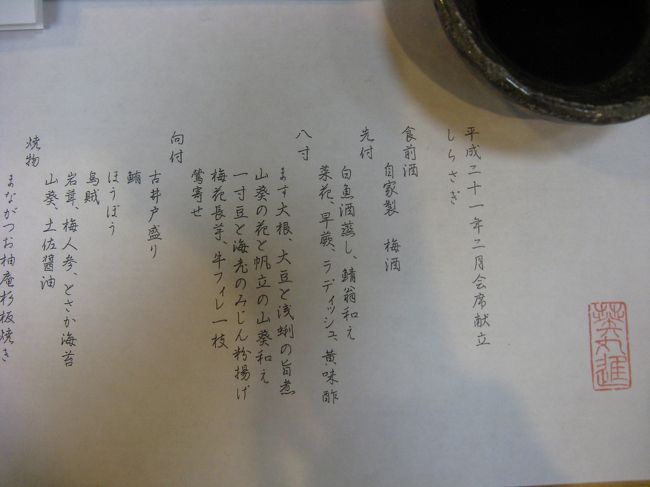 平成二十一年二月会席献立
しらさぎ
食前酒
自家製 梅酒
先付
白魚酒蒸し、鯖翁和え
菜花、早蕨、ラディッシュ、黄味酢
八寸
ます大根、大豆と浅蜊の旨煮
山葵の花と帆立の山葵和え
一寸豆と海老のみじん粉揚げ
梅花長芋、牛フィレ一枝
鶯寄せ
向付
古井戸盛り
鮪
ほうぼう
烏賊
岩茸、梅人参、とさか海苔
山葵、土佐醤油
焼物
まながつお柚庵杉板焼き